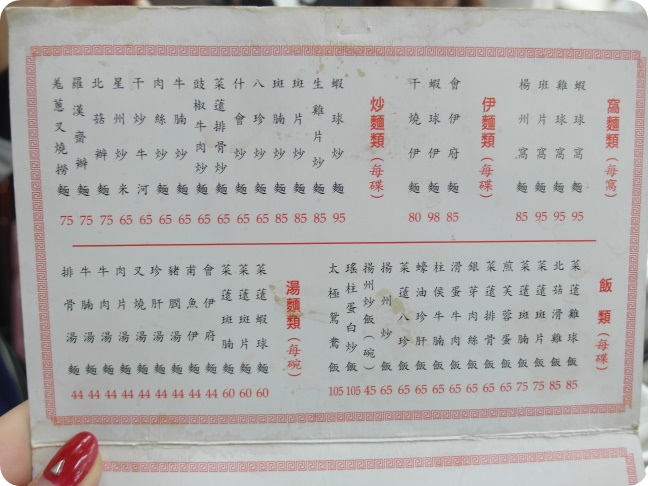 窩麵類（每窩）
蝦球窩麵 95
雞球窩麵 95
班片窩麵 95
楊州窩麵 85
伊麵類（每碟）
會伊府麵 85
蝦球伊麵 98
干燒伊麵 80
炒麵類（每碟）
蝦球炒麵 95
生雞片炒麵 85
班片炒麵 85
班腩炒麵 85
八珍炒麵 65
什會炒麵 65
菜薳排骨炒麵 65
豉椒牛肉炒麵 65
牛腩炒麵 65
肉絲炒麵 65
干炒牛河 65
星州炒米 65
北菇辦麵 75
羅漢齋辦麵 75
羗蔥叉燒撈麵 75
飯類（每碟）
菜薳雞球飯 85
北菇滑雞飯 85
菜薳班片飯 75
菜薳班腩飯 75
煎芙蓉蛋飯 65
菜薳排骨飯 65
銀芽肉絲飯 65
滑蛋牛肉飯 65
柱侯牛腩飯 65
蠔油珍肝飯 65
菜薳八珍飯 65
揚州炒飯 65
揚州炒飯（碗） 45
瑤柱蛋白炒飯 105
太極鴛鴦飯 105
湯麵類（每碗）
菜薳蝦球麵 60
菜薳班片麵 60
菜薳班腩麵 60
會伊府麵 44
甫魚伊麵 44
豬膶湯麵 44
珍肝湯麵 44
叉燒湯麵 44
肉片湯麵 44
牛腩湯麵 44
牛肉湯麵 44
排骨湯麵 44